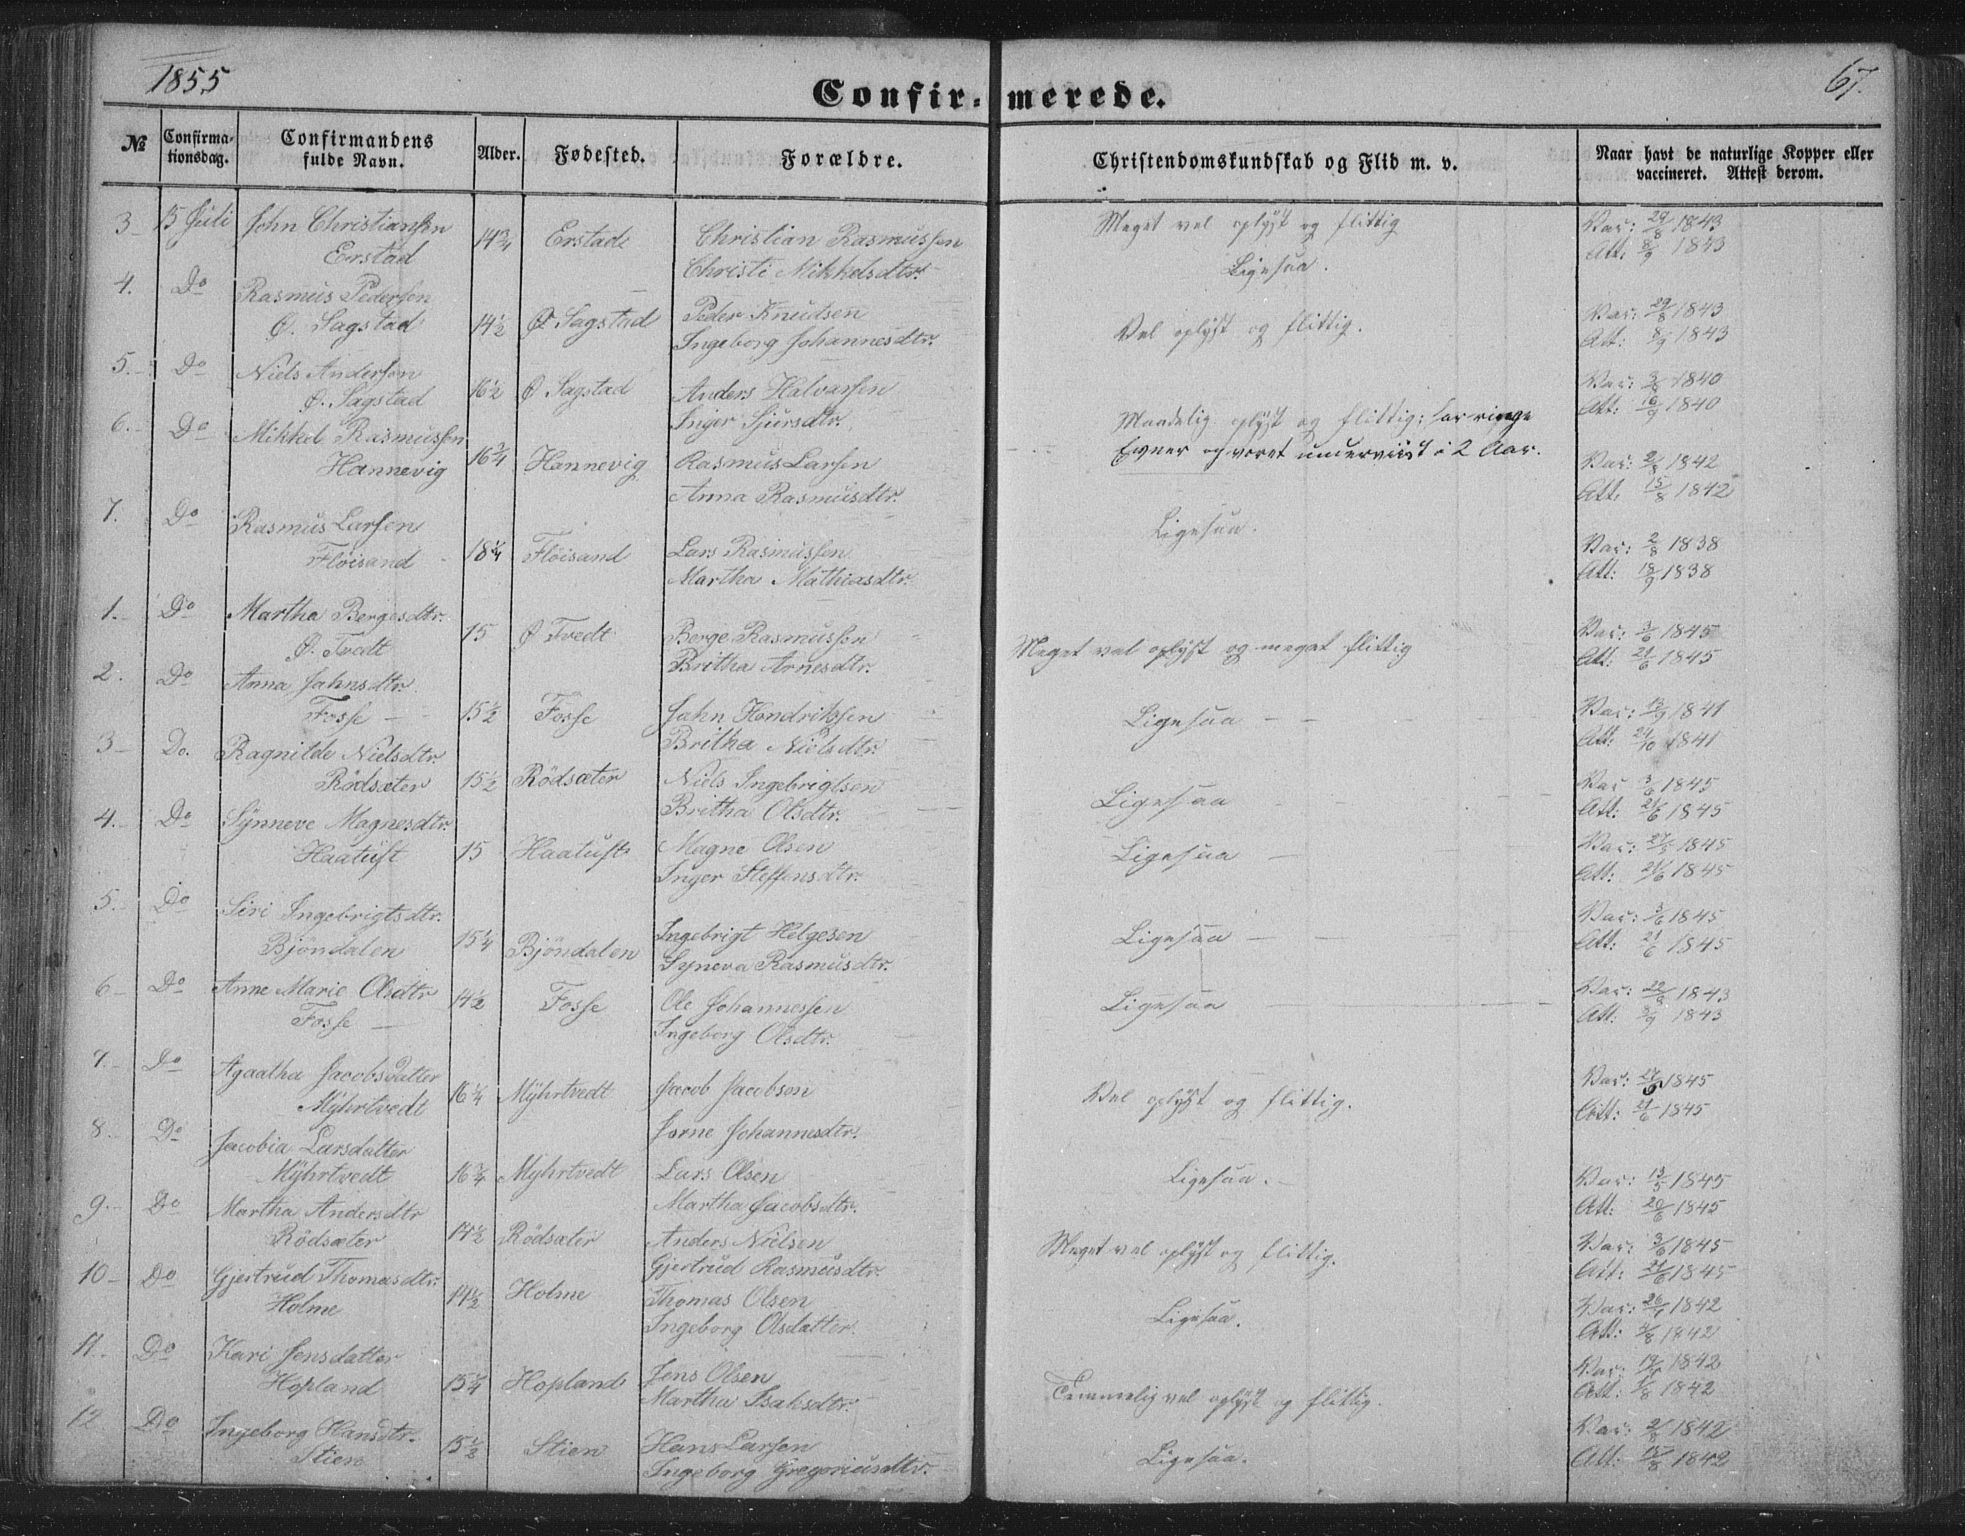 1855
67.
Confirmerede.
No
Confirmationsdag.
Confirmandens fulde Navn.
Alder.
Fødested.
Forældre.
Christendomskundskab og Flid m. v.
Naar havt de naturlige Kopper eller vaccineret. Attest derom.
3 15 Juli John Christiansen Christian Rasmussen Meget vel oplyst og flittig Vac: 29/8 1843
Erstad 14 3/4 Erstad Christi Mikkelsdtr. Att: 8/9 1843
4. Do Rasmus Pedersen Ligesaa.
Ø. Sagstad 14 1/2 Ø Sagstad Peder Knudsen Vac: 29/8 1843
Ingeborg Johannesdtr. Vel oplyst og flittig. Att: 8/9 1843
5. Do Niels Andersen
Ø. Sagstad 16 1/2 Ø Sagstad Anders Halvorsen Vac: 1840
Inger Sjursdtr. Att: 1840
6. Do Mikkel Rasmussen Maadelig oplyst og flittig; har ringe
Hannevig 16 3/4 Hannevig Rasmus Larsen Evner og været underviist i 2 Aar. Vac: 2/8 1842
Anna Rasmusdtr. Att. 15/8 1842
7. Do Rasmus Larsen Ligesaa.
Fløisand 18 1/4 Fløisand Lars Rasmussen Vac: 2/8 1838
Martha Mathiasdtr. Att: 18/9 1838
1. Do Martha Bergesdtr.
Ø. Tvedt 15 Ø Tvedt Berge Rasmussen Meget vel oplyst og meget flittig Vac: 3/6 1845
Britha Arnesdtr. Att: 21/6 1845
2. Do Anna Jahnsdtr.
Fosse 15 1/2 Fosse Jahn Hendriksen Ligesaa Vac: 13/9 1841
Britha Nielsdtr. Att: 24/10 1841
3 Do. Ragnilde Nielsdtr.
Rödsæter 15 1/2 Rödsæter Niels Ingebrigtsen Ligesaa Vac 3/6 1845
Britha Olsdtr. Att: 21/6 1845
4. Do Synneve Magnesdtr.
Haatuft 15 Haatuft Magne Olsen Ligesaa Vac: 27/5 1845
Inger Steffensdtr. Att: 21/6 1845
5. Do Siri Ingebrigtsdtr.
Bjöndalen 15 1/4 Bjöndalen Ingebrigt Helgesen Ligesaa Vac: 3/6 1845
Syneva Rasmusdtr. Att: 21/6 1845
6 Do Anne Marie Olsdtr
Fosse 14 1/2 Fosse Ole Johannessen Ligesaa Vac: 1843
Ingeborg Olsdtr. Att: 1843
7. Do Agaatha Jacobsdatter
Mÿhrtvedt 16 1/4 Mÿhrtvedt Jacob Jacobson Vel oplyst og flittig. Vac: 27/6 1845
Johannesdtr. Att: 21/6 1845
8. Do Jacobia Larsdatter
Mÿhrtvedt 16 3/4 Mÿhrtvedt Lars Olsen Ligesaa. Vac: 13/5 1845
Martha Jacobsdtr. Att: 20/6 1845
9. Do Martha Andersdtr
Rödsæter 14 1/2 Rödsæter Anders Nielsen Meget vel oplyst og flittig. Vac: 3/6 1845
Gjertrud Rasmusdtr. Att: 21/6 1845
10 Do Gjertrud Thomasdtr.
Holme 14 1/2 Holme Thomas Olsen Ligesaa. Vac: 1842
Ingeborg Olsdatter. Att: 1842
11. Do Kari Jensdatter
Hopland 15 1/4 Hopland Jens Olsen Vac: 1842
Martha Isaksdtr. Temmelig vel oplyst og flittig. Att: 1842
12 Do Ingeborg Hansdtr.
Stien 15 1/2 Stien Hans Larsen Ligesaa. Vac: 2/8 1842
Ingeborg Gregoriusdtr. Att: 15/8 1842